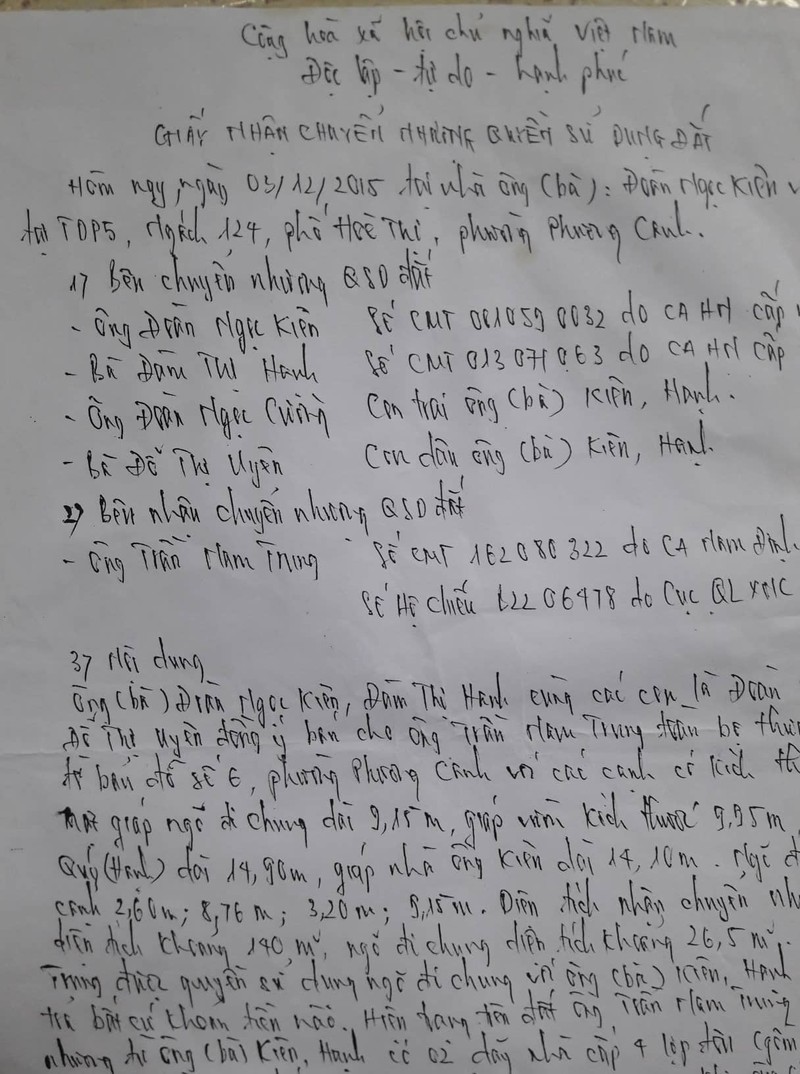 Cộng hoà xã hội chủ nghĩa Việt Nam
Độc lập - tự do - hạnh phúc
GIẤY NHẬN CHUYỂN NHƯỢNG QUYỀN SỬ DỤNG ĐẤT
Hôm nay, ngày 03/12/2015 tại nhà ông (bà): Đoàn Ngọc Kiên
tại TDP5, Ngách 124, phố Hoè Thị, phường Phương Canh.
1, Bên chuyển nhượng QSD đất
- Ông Đoàn Ngọc Kiên Số CMT 0010590032 do CA HN cấp
- Bà Đàm Thị Hạnh Số CMT 013071063 do CA HN cấp
- Ông Đoàn Ngọc Cường Con trai ông (bà) Kiên, Hạnh.
- Bà Đỗ Thị Uyên Con dâu ông (bà) Kiên, Hạnh
2, Bên nhận chuyển nhượng QSD đất
- Ông Trần Nam Trung Số CMT 162080322 do CA Nam Định
Số Hộ chiếu 2206478 do Cục QL XNC
3, Nội dung
Ông (bà) Đoàn Ngọc Kiên, Đàm Thị Hạnh cùng các con là Đoàn
Đỗ Thị Uyên đồng ý bán cho ông Trần Nam Trung toàn bộ
tờ bản đồ số 6, phường Phương Canh với các cạnh có kích
mặt giáp ngõ đi chung dài 9,15m, giáp vườn kích thước 9,95m
Quý (Hạnh) dài 14,90m, giáp nhà ông Kiên dài 14,10m. Ngõ
cạnh 2,60m; 8,76m; 3,20m; 9,15m. Diện tích nhận chuyển
diện tích khoảng 140 m², ngõ đi chung diện tích khoảng 26,5 m².
Trung được quyền sử dụng ngõ đi chung với ông (bà) Kiên, Hạnh
trả bất cứ khoản tiền nào. Hiện trạng trên đất ông Trần Nam Trung
nhượng từ ông (bà) Kiên, Hạnh có 02 dãy nhà cấp 4 lợp tôn (gồm